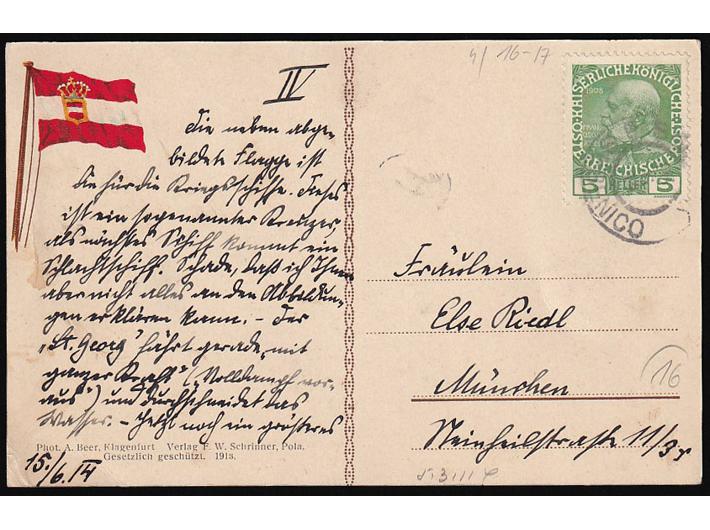 4/ 16-17
IV
Die neben abge-
bildete Flagge ist
die für die Kriegsschiffe. Dieses
ist ein sogenannter Kreuzer
als nächstes Schiff kommt ein
Schlachtschiff. Schade, daß ich Ihnen
aber nicht alles an den Abbildun-
gen erklären kann. – Der
„St. Georg" fährt gerade „mit
ganzer Kraft" („Volldampf vor-
aus") und durchschneidet das
Wasser. – Jetzt noch ein größeres
Phot. A. Beer, Klagenfurt Verlag F. W. Schrinner, Pola.
Gesetzlich geschützt. 1913.
15./6.14
1908
KAISERLICHE KÖNIGLICHE
ÖSTERREICHISCHE
5 HELLER 5
NICO
Fräulein
Else Riedl
München
Steinheilstraße 11/3r
16